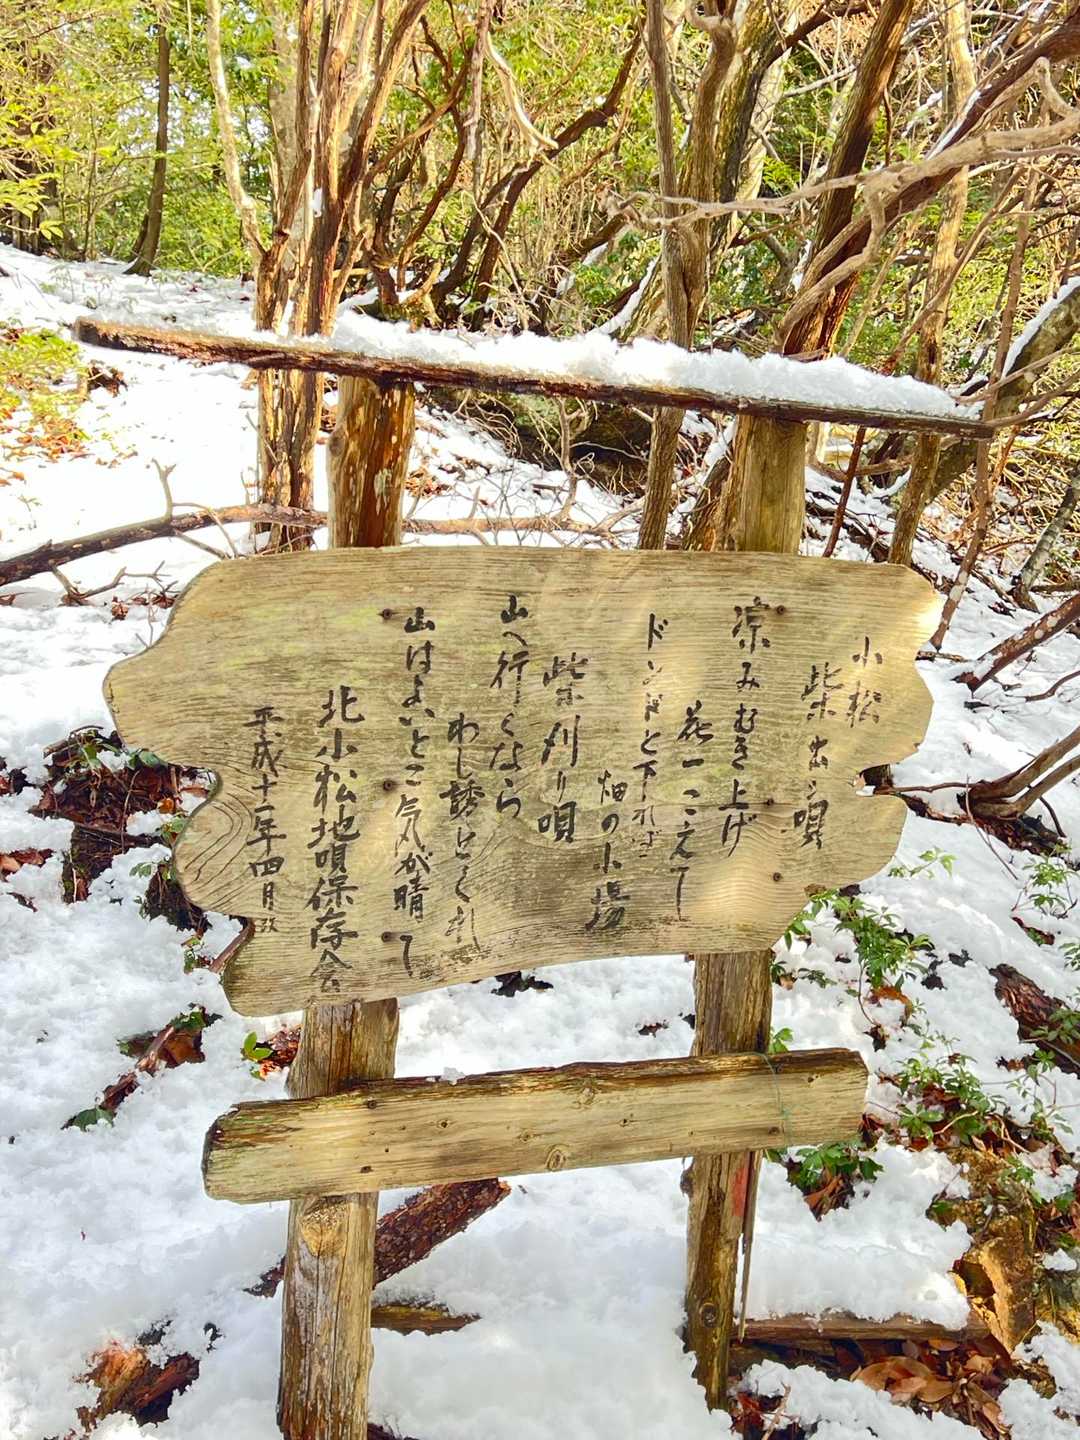 小松
柴出し唄
凉みむき上げ
花一こえて
ドンドと下れば
畑の小場
柴刈り唄
山へ行くなら
わし誘とくれ
山はよいとこ気が晴て
北小松地唄保存会
平成十一年四月改